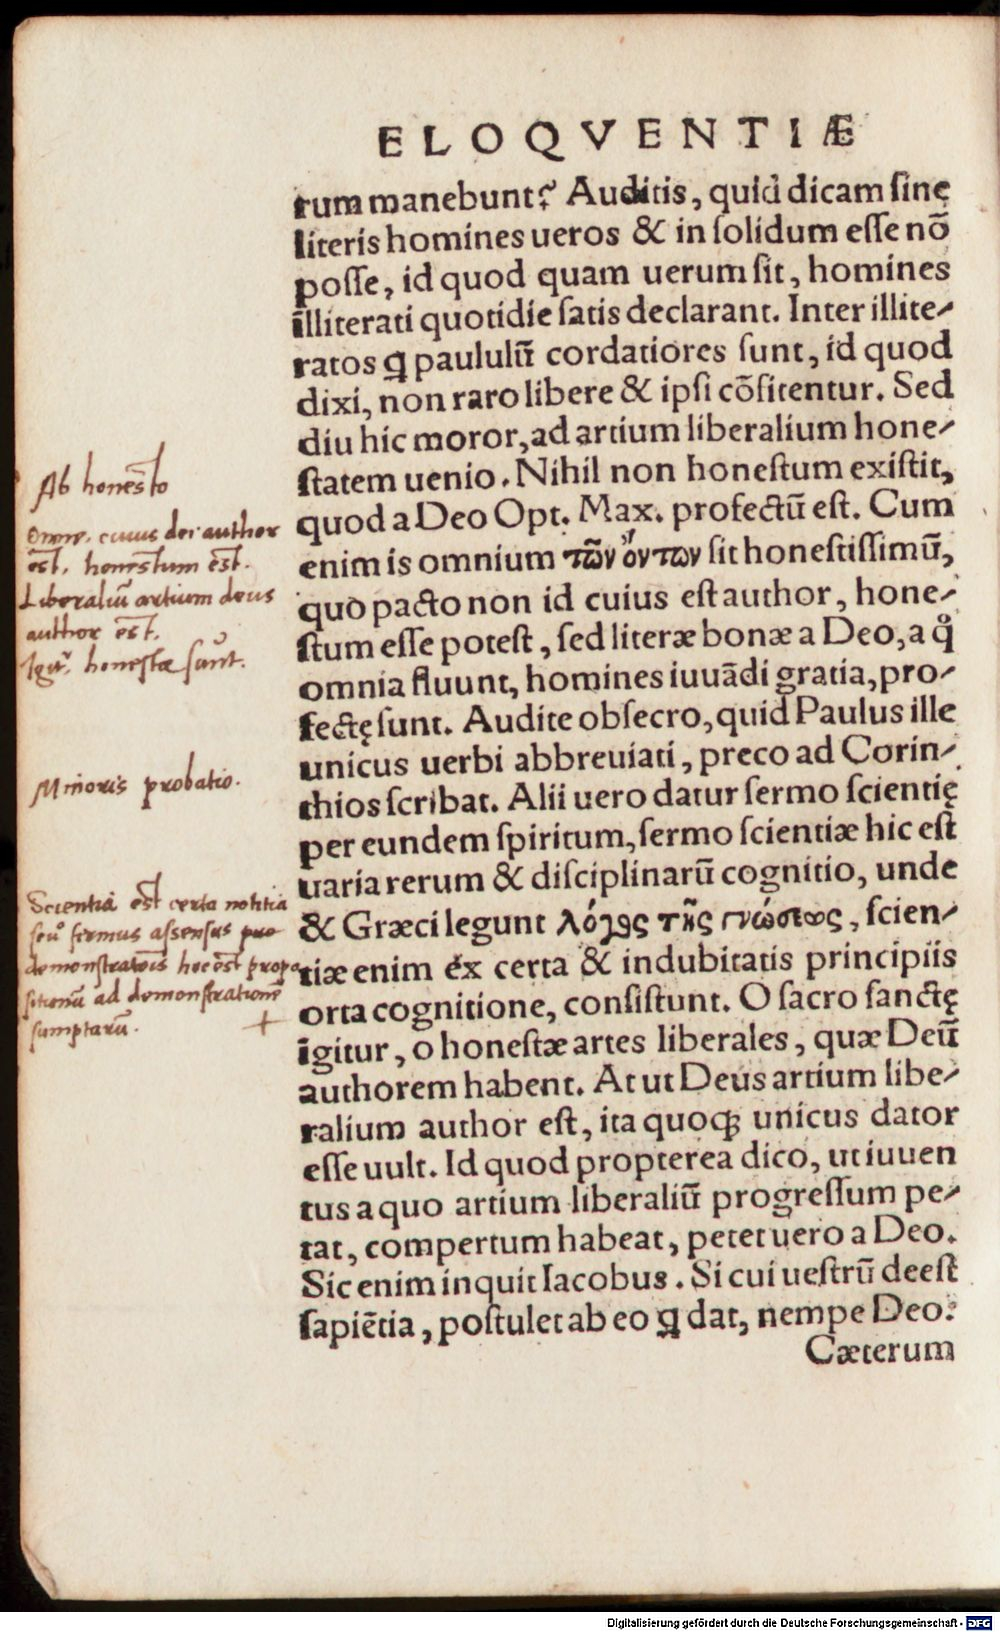 ELOQVENTIÆ
rum manebunt? Auditis, quid dicam sinę
literis homines ueros & in solidum esse nō
posse, id quod quam uerum sit, homines
illiterati quotidie satis declarant. Inter illite-
ratos q̨ paululū cordatiores sunt, id quod
dixi, non raro libere & ipsi cōfitentur. Sed
diu hic moror, ad artium liberalium hone-
statem uenio. Nihil non honestum existit,
quod a Deo Opt. Max. profectū est. Cum
enim is omnium τῶν ὄντων sit honestissimū,
quo pacto non id cuius est author, hone-
stum esse potest, sed literæ bonæ a Deo, a q̊
omnia fluunt, homines iuuādi gratia, pro-
fectę sunt. Audite obsecro, quid Paulus ille
unicus uerbi abbreuiati, preco ad Corin-
thios scribat. Alii uero datur sermo scientię
per eundem spiritum, sermo scientiæ hic est
uaria rerum & disciplinarū cognitio, unde
& Græci legunt λόγος τῆς γνώσεως, scien-
tiæ enim ex certa & indubitatis principiis
orta cognitione, consistunt. O sacro sanctę
igitur, o honestæ artes liberales, quæ Deū
authorem habent. At ut Deus artium libe-
ralium author est, ita quoq; unicus dator
esse uult. Id quod propterea dico, ut iuuen
tus a quo artium liberaliū progressum pe-
tat, compertum habeat, petet uero a Deo.
Sic enim inquit Iacobus. Si cui uestrū deest
sapiētia, postulet ab eo q̨ dat, nempe Deo.
Cæterum
Ab honesto
Omne, cuius dei author
est, honestum est.
Liberaliū artium deus
author est.
Igit̄, honestæ sūnt.
Minoris probatio.
Scientia est certa notitia
seu firmus assensus pro
demonstratōis hoc est propo
sitionū ad demonstrationē
sumptarū.
Digitalisierung gefördert durch die Deutsche Forschungsgemeinschaft - DFG